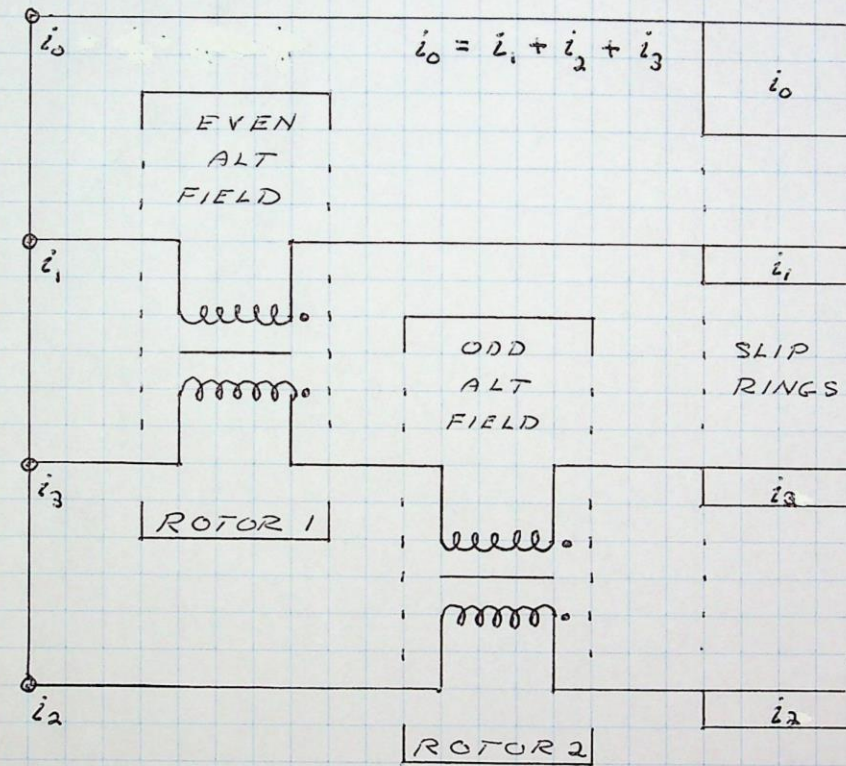 i₀
i₀ = i₁ + i₂ + i₃
i₀
EVEN
ALT
FIELD
i₁
i₁
ODD
ALT
FIELD
SLIP
RINGS
i₃
i₃
ROTOR 1
i₂
i₂
ROTOR 2